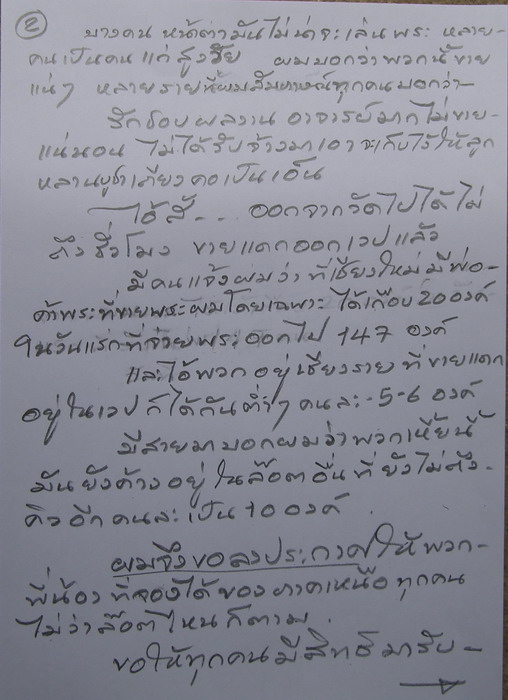 2
บางคน หน้าตามันไม่น่าจะเล่นพระ หลาย-
คนเป็นคนแก่ สูงวัย ผมบอกว่าพวกนี้ขาย
แน่ๆ หลายรายที่ผมสัมภาษณ์ทุกคนบอกว่า-
รักชอบผลงาน อาจารย์มาก ไม่ขาย-
แน่นอน ไม่ได้รับจ้างมาเอา จะเก็บไว้ให้ลูก
หลานบูชา เถียงคอเป็นเอ็น
ไอ้สั... ออกจากวัดไปได้ไม่
ถึงชั่วโมง ขายแดกออกเวปแล้ว
มีคนแจ้งผมว่า ที่เชียงใหม่ มีพ่อ-
ค้าพระที่ขายพระผมโดยเฉพาะ ได้เกือบ 20 องค์
ในวันแรกที่จ่ายพระออกไป 147 องค์
และไอ้พวก อยู่เชียงราย ที่ขายแดก
อยู่ในเวป ก็ได้กันต่ำๆ คนละ -5-6 องค์
มีสายมาบอกผมว่า พวกเหี้ยนี้
มันยังค้างอยู่ ในล๊อตอื่น ที่ยังไม่ถึง-
คิวอีก คนละเป็น 10 องค์
ผมจึงขอลงประกาศให้พวก-
พี่น้อง ที่จองได้ของภาคเหนือ ทุกคน
ไม่ว่าล๊อตไหนก็ตาม.
ขอให้ทุกคนมีสิทธิ์มารับ-